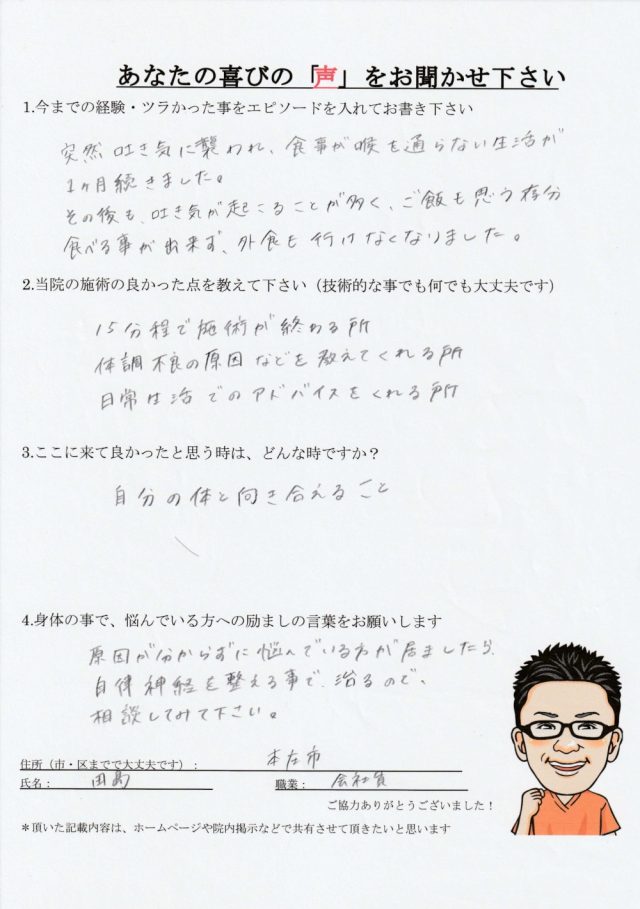 あなたの喜びの「声」をお聞かせ下さい
1.今までの経験・ツラかった事をエピソードを入れてお書き下さい
突然吐き気に襲われ、食事が喉を通らない生活が
1ヶ月続きました。
その後も、吐き気が起こることが多く、ご飯も思う存分
食べる事が出来ず、外食も行けなくなりました。
2.当院の施術の良かった点を教えて下さい（技術的な事でも何でも大丈夫です）
15分程で施術が終わる所
体調不良の原因などを教えてくれる所
日常生活でのアドバイスをくれる所
3.ここに来て良かったと思う時は、どんな時ですか？
自分の体と向き合えること
4.身体の事で、悩んでいる方への励ましの言葉をお願いします
原因が分からずに悩んでいる方が居ましたら、
自律神経を整える事で、治るので、
相談してみて下さい。
住所（市・区までで大丈夫です）： 市
氏名： 職業： 会社員
ご協力ありがとうございました！
＊頂いた記載内容は、ホームページや院内掲示などで共有させて頂きたいと思います